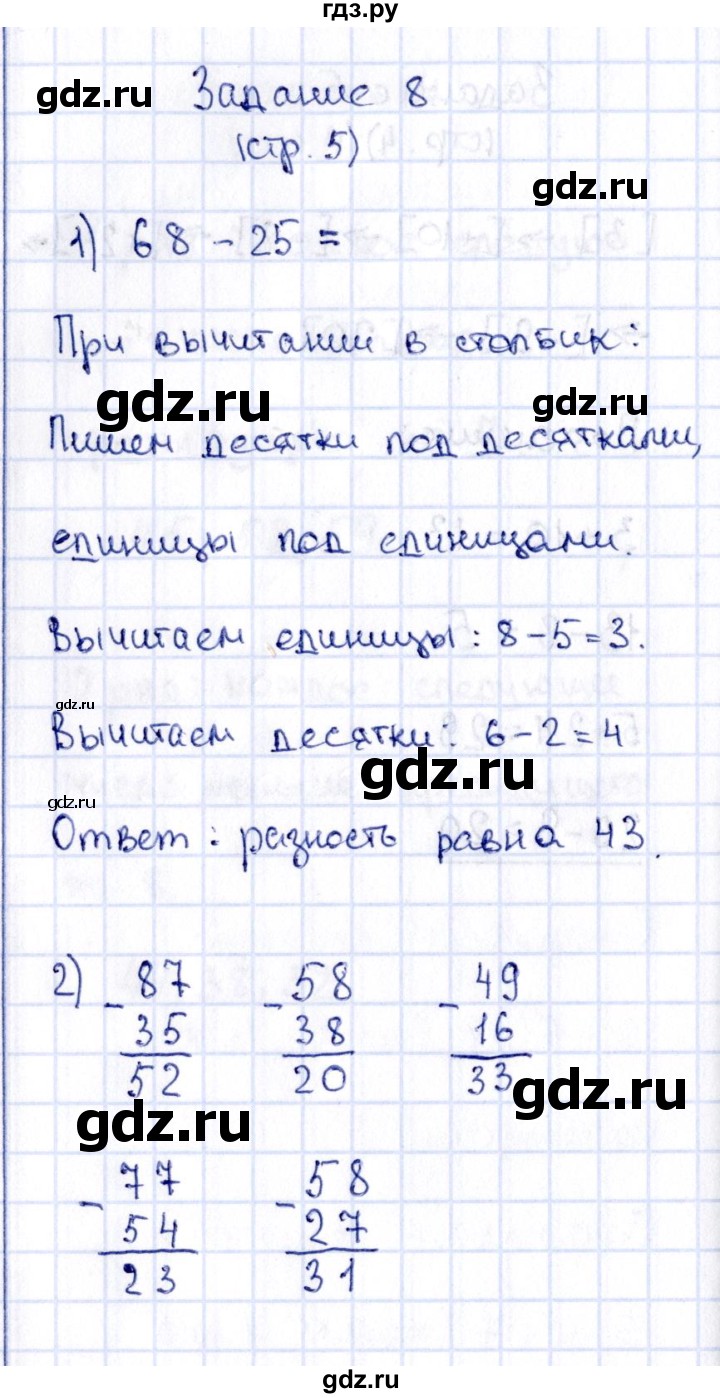 гдз.ру
gdz.ru
Задание 8
(стр. 5)
gdz.ru
1) 68 - 25 =
При вычитании в столбик:
gdz.ru
gdz.ru
Пишем десятки под десятками,
единицы под единицами.
Вычитаем единицы: 8 - 5 = 3.
gdz.ru
Вычитаем десятки: 6 - 2 = 4
gdz.ru
gdz.ru
Ответ: разность равна 43.
2) - 87 - 58 - 49
35 38 16
52 20 33
gdz.ru
gdz.ru
- 77 - 58
54 27
23 31
gdz.ru